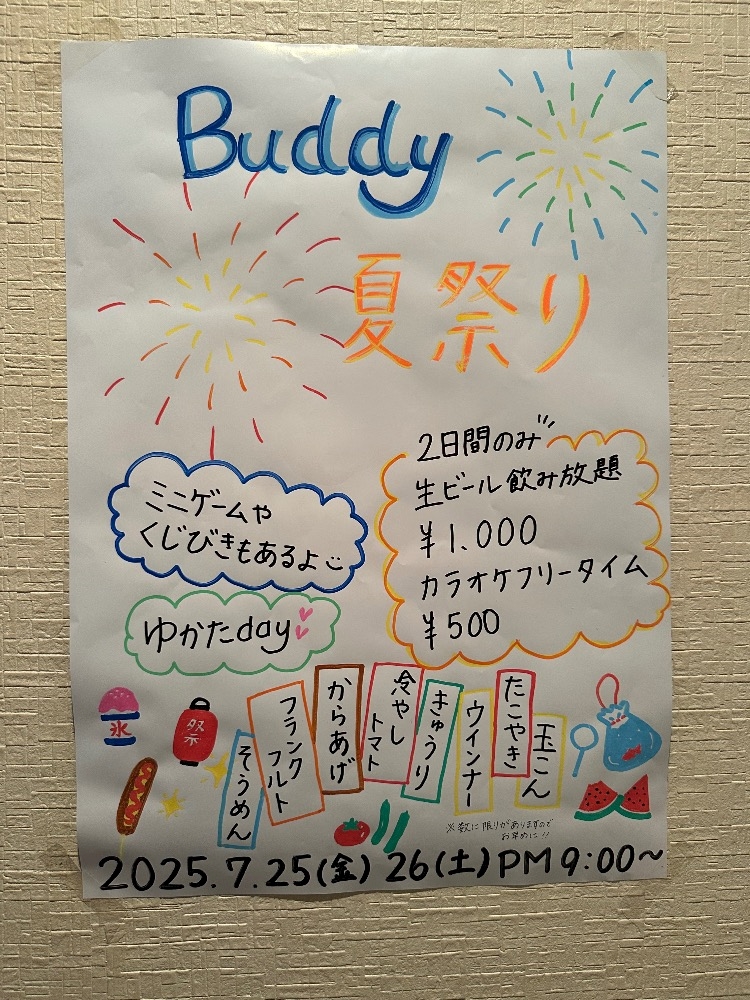 Buddy
夏祭り
2日間のみ
生ビール飲み放題
¥1.000
カラオケフリータイム
¥500
ミニゲームや
くじびきもあるよ
ゆかたday
氷
祭
玉こん
たこやき
ウインナー
きゅうり
冷やし
トマト
からあげ
フランク
フルト
そうめん
※数に限りがありますので
お早めに!!
2025.7.25(金) 26(土) PM9:00~